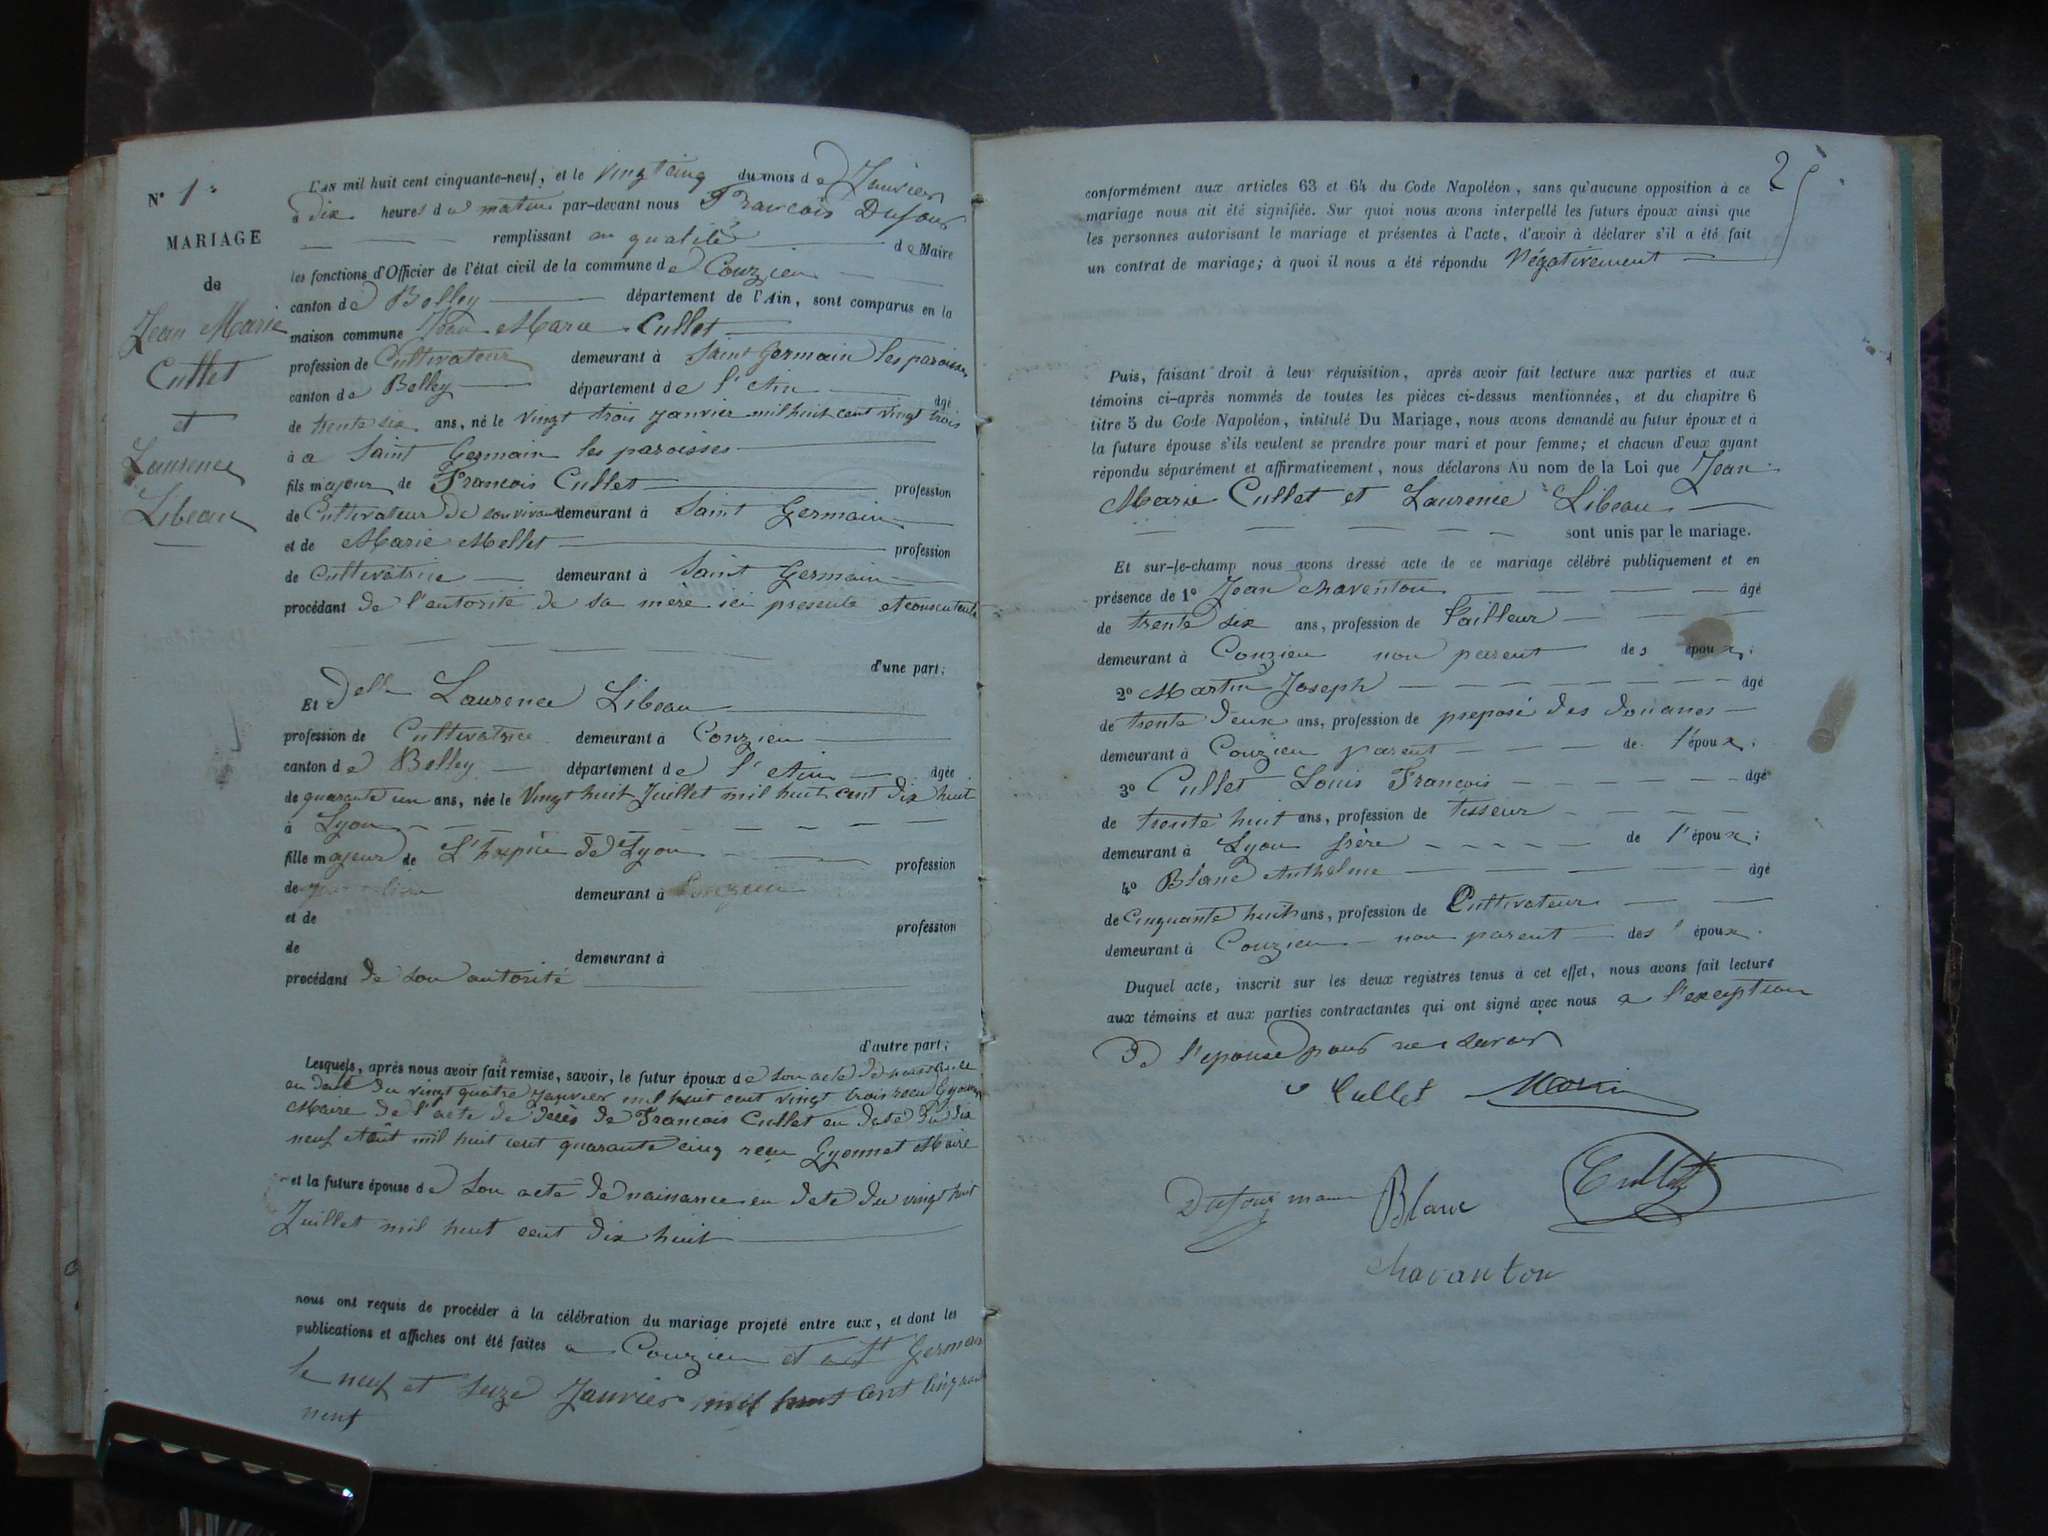 N° 1
MARIAGE
de
Jean Marie
Cullet
et
Laurence
Libeau
L'AN mil huit cent cinquante-neuf, et le vingt cinq du mois de Janvier
à dix heures du matin par-devant nous Francois Dufour
remplissant en qualité de Maire
les fonctions d'Officier de l'état civil de la commune de Couzieu
canton de Belley département de l'Ain, sont comparus en la
maison commune Jean Marie Cullet
profession de Cultivateur demeurant à Saint Germain les paroisses
canton de Belley département de l'Ain âgé
de trente six ans, né le vingt trois janvier mil huit cent vingt trois
à a Saint Germain les paroisses
fils majeur de Francois Cullet profession
de Cultivateur de son vivant demeurant à Saint Germain
et de Marie Mellet profession
de Cultivatrice demeurant à Saint Germain
procédant de l'autorité de sa mère ici presente et consentente
d'une part;
Et Delle Laurence Libeau
profession de Cultivatrice demeurant à Conzieu
canton de Belley département de l'Ain âgée
de quarante un ans, née le Vingt huit Juillet mil huit cent dix huit
à Lyon
fille majeur de L'hspice de Lyon profession
de demeurant à Conzieu
et de profession
de demeurant à
procédant de son autorité
d'autre part;
Lesquels, après nous avoir fait remise, savoir, le futur époux de son acte de naissance
en date du vingt quatre Janvier mil huit cent vingt trois recu Gyonnet
Maire de l'acte de decès de Francois Cullet en date du dix
neuf Août mil huit cent quarante cinq reçu Gyonnet Maire
et la future épouse de son acte de naissance en date du vingt huit
Juillet mil huit cent dix huit
nous ont requis de procéder à la célébration du mariage projeté entre eux, et dont les
publications et affiches ont été faites a Couzieu et a St Germain
le neuf et seize Janvier mil huit cent cinquante
neuf
2
conformément aux articles 63 et 64 du Code Napoléon, sans qu'aucune opposition à ce
mariage nous ait été signifiée. Sur quoi nous avons interpellé les futurs époux ainsi que
les personnes autorisant le mariage et présentes à l'acte, d'avoir à déclarer s'il a été fait
un contrat de mariage; à quoi il nous a été répondu Négativement
Puis, faisant droit à leur réquisition, après avoir fait lecture aux parties et aux
témoins ci-après nommés de toutes les pièces ci-dessus mentionnées, et du chapitre 6
titre 5 du Code Napoléon, intitulé Du Mariage, nous avons demandé au futur époux et à
la future épouse s'ils veulent se prendre pour mari et pour femme; et chacun d'eux ayant
répondu séparément et affirmativement, nous déclarons Au nom de la Loi que Jean
Marie Cullet et Laurence Libeau
sont unis par le mariage.
Et sur-le-champ nous avons dressé acte de ce mariage célébré publiquement et en
présence de 1° Jean Chaventon âgé
de trente six ans, profession de tailleur
demeurant à Conzieu non parent des époux;
2° Martin Joseph âgé
de trente deux ans, profession de preposé des douanes
demeurant à Couzieu parent de l'époux;
3° Cullet Louis Francois âgé
de trente huit ans, profession de tisseur
demeurant à Lyon frère de l'époux;
4° Blanc Anthelme âgé
de Cinquante huit ans, profession de Cultivateur
demeurant à Couzieu non parent des époux.
Duquel acte, inscrit sur les deux registres tenus à cet effet, nous avons fait lecture
aux témoins et aux parties contractantes qui ont signé avec nous a l'exception
de l'epouse pour ne savoir
Cullet
Dufour maire Blanc Cullet
Chavanton